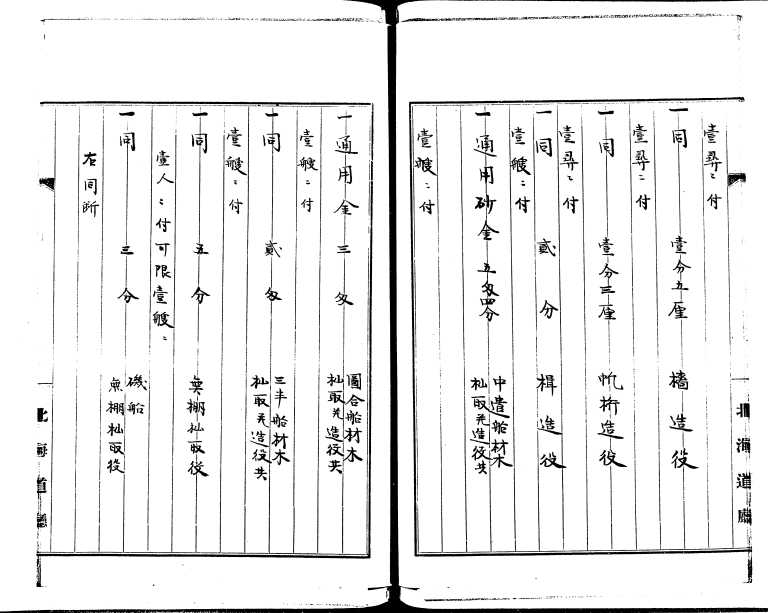 壹舜ニ付
一同 壹分五厘 檣造役
壹舜ニ付
一同 壹分三厘 帆桁造役
壹舜ニ付
一同 貳分 楫造役
壹艘ニ付
一通用砂金 五匁四分 中遣船材木
杣取共造役共
壹艘ニ付
北海道廳
一通用金 三匁 圖合船材木
杣取共造役共
壹艘ニ付
一同 貳匁 三半船材木
杣取共造役共
壹艘ニ付
一同 五分 無棚杣取役
壹人ニ付可限壹艘ニ
一同 三分 磯船
無棚杣取役
右同所
北海道廳